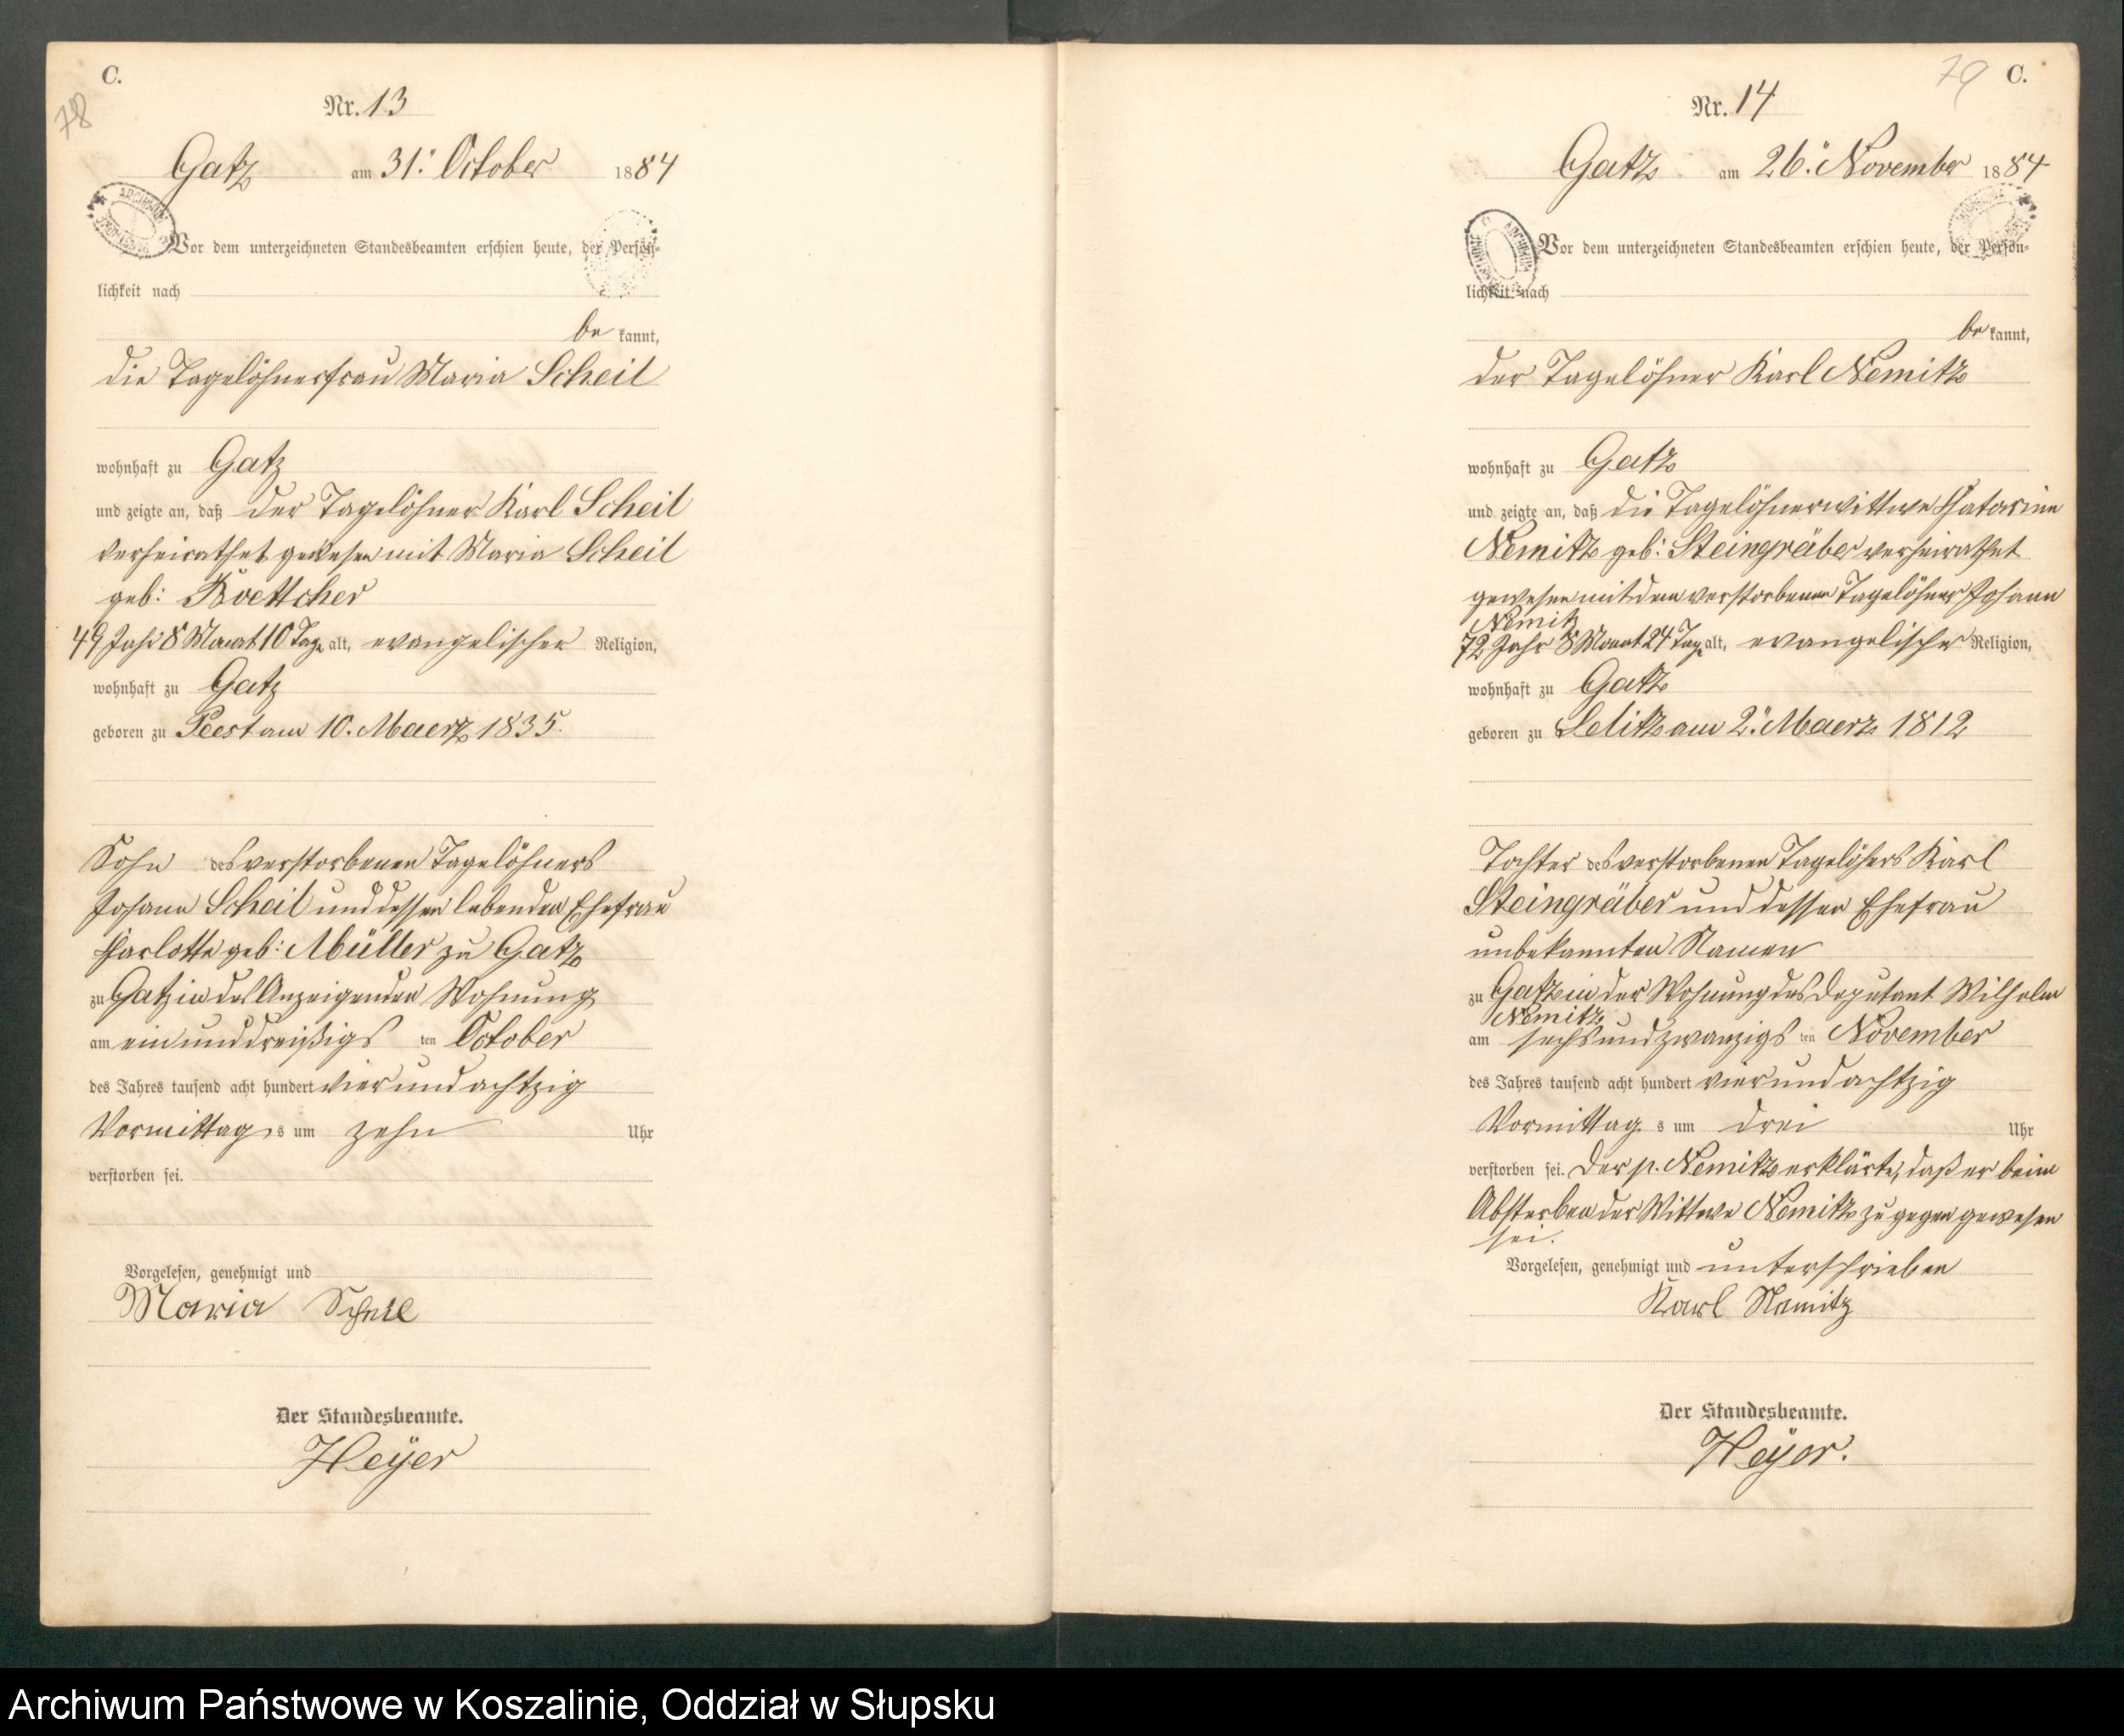 C.
78
Nr. 13
Gatz am 31. October 1884
Vor dem unterzeichneten Standesbeamten erschien heute, der Persön-
lichkeit nach
be kannt,
die Tagelöhnerfrau Maria Scheil
wohnhaft zu Gatz
und zeigte an, daß der Tagelöhner Karl Scheil
verheirathet gewesen mit Maria Scheil
geb: Boettcher
49 Jahr 8 Monat 10 Tage alt, evangelischer Religion,
wohnhaft zu Gatz
geboren zu Peest am 10. Maerz 1835.
Sohn des verstorbenen Tagelöhners
Johann Scheil und dessen lebenden Ehefrau
Charlotte geb: Müller zu Gatz
zu Gatz in des Anzeigenden Wohnung
am ein und dreißigs ten October
des Jahres tausend acht hundert vier und achtzig
Vormittag s um zehn Uhr
verstorben sei.
Vorgelesen, genehmigt und
Maria Scheil
Der Standesbeamte.
Heyer
79 C.
Nr. 14
Gatz am 26. November 1884
Vor dem unterzeichneten Standesbeamten erschien heute, der Persön-
lichkeit nach
be kannt,
der Tagelöhner Karl Nemitz
wohnhaft zu Gatz
und zeigte an, daß die Tagelöhnerwittwe Catarine
Nemitz geb: Steingräber verheirathet
gewesen mit dem verstorbenen Tagelöhner Johann
Nemitz
72 Jahr 8 Monat 24 Tage alt, evangelischer Religion,
wohnhaft zu Gatz
geboren zu Selitz am 2. Maerz 1812
Tochter des verstorbenen Tagelöhers Karl
Steingräber und dessen Ehefrau
unbekannten Namen
zu Gatz in der Wohnung des Deputant Wilhelm
Nemitz
am sechs und zwanzigs ten November
des Jahres tausend acht hundert vier und achtzig
Vormittag s um drei Uhr
verstorben sei. Der p. Nemitz erklärte, daß er beim
Absterben der Wittwe Nemitz zu gegen gewesen
sei.
Vorgelesen, genehmigt und unterschrieben
Karl Nemitz
Der Standesbeamte.
Heyer.
Archiwum Państwowe w Koszalinie, Oddział w Słupsku